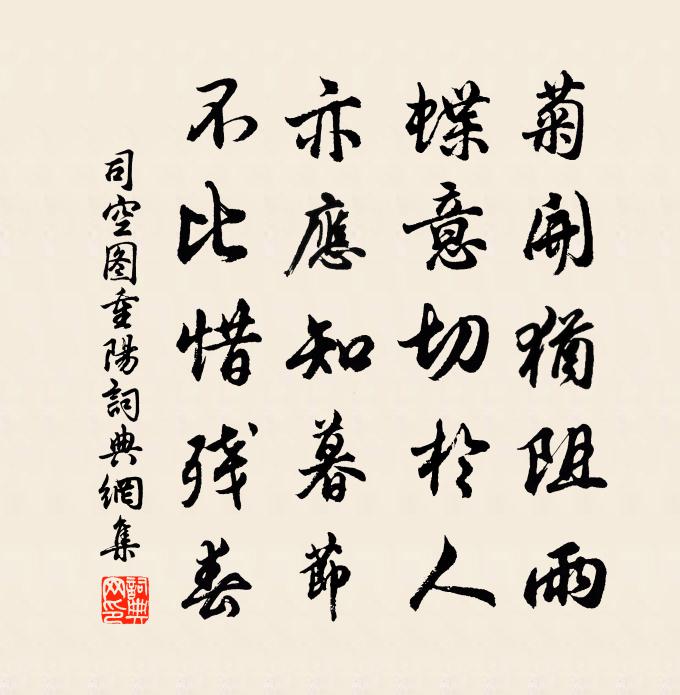 菊開猶阻雨
蝶意切於人
亦應知暮節
不比惜残春
司空图重陽詞典網集
詞典网印